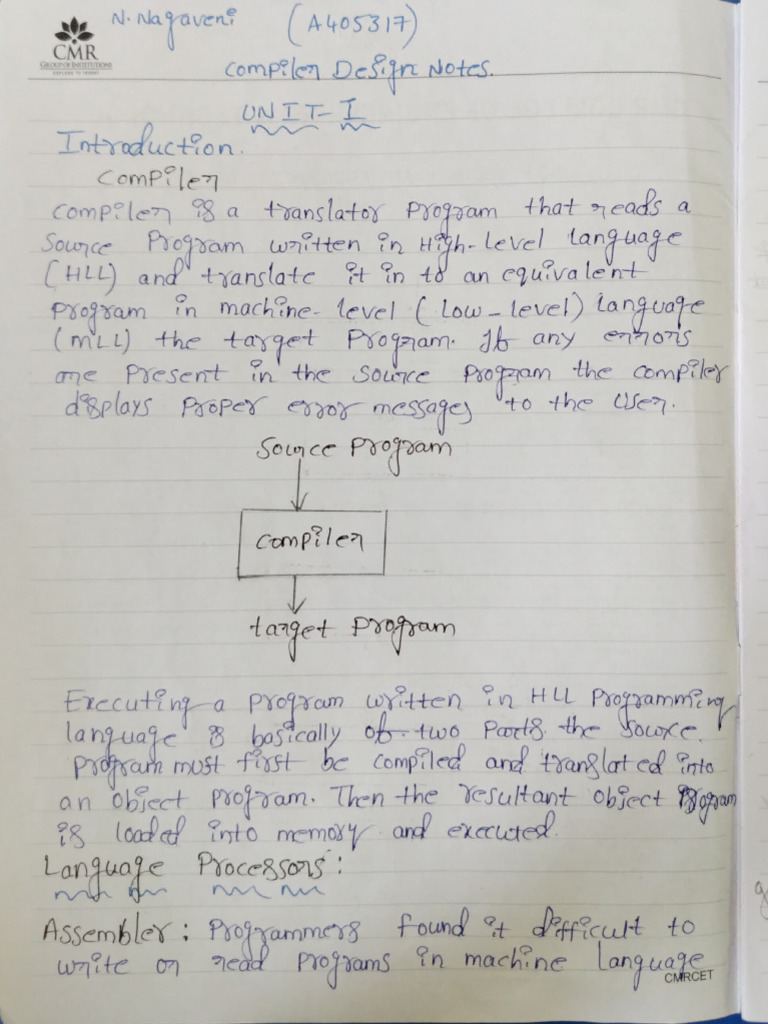 N. Nagaveni (A405317)
CMR
GROUP OF INSTITUTIONS
EXPLORE TO INVENT
Compiler Design Notes.
UNIT-I
Introduction.
Compiler
Compiler is a translator program that reads a
Source Program written in High-Level Language
(HLL) and translate it in to an equivalent
program in machine-level (Low-level) Language
(MLL) the target Program. If any errors
are Present in the source program the compiler
displays Proper error messages to the User.
Source Program
Compiler
target Program
Executing a program written in HLL Programming
language is basically of two Parts. the source
Program must first be compiled and translated into
an object program. Then the resultant object program
is loaded into memory and executed.
Language Processors:
Assembler: Programmers found it difficult to
write or read programs in machine language
CMRCET